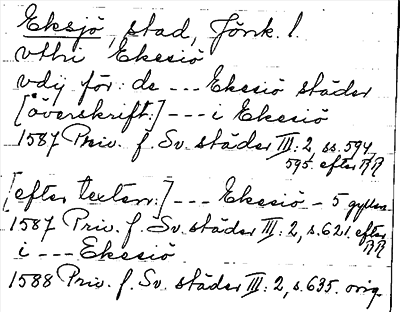 Eksjö, stad, Jönk. l.
vthi Ekesiö
vdij för: de --- Ekesiö städer
[överskrift:] --- i Ekesiö
1587 Priv. f. Sv. städer III: 2, ss. 594,
595. efter RR
[efter texten:] --- Ekesiö - 5 gyllen
1587 Priv. f. Sv. städer III: 2, s. 621. efter
RR
i --- Ekesiö
1588 Priv. f. Sv. städer III: 2, s. 635. orig.